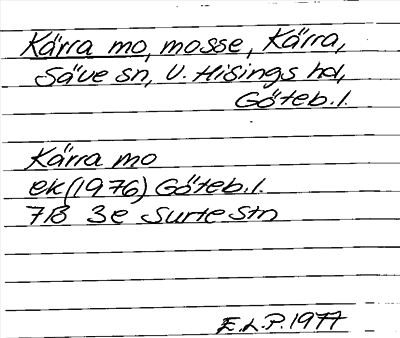 Kärra mo, mosse, Kärra,
Säve sn, V. Hisings hd,
Göteb. l.
Kärra mo
ek (1976) Göteb. l.
7B 3e Surte stn
E.L.P. 1977